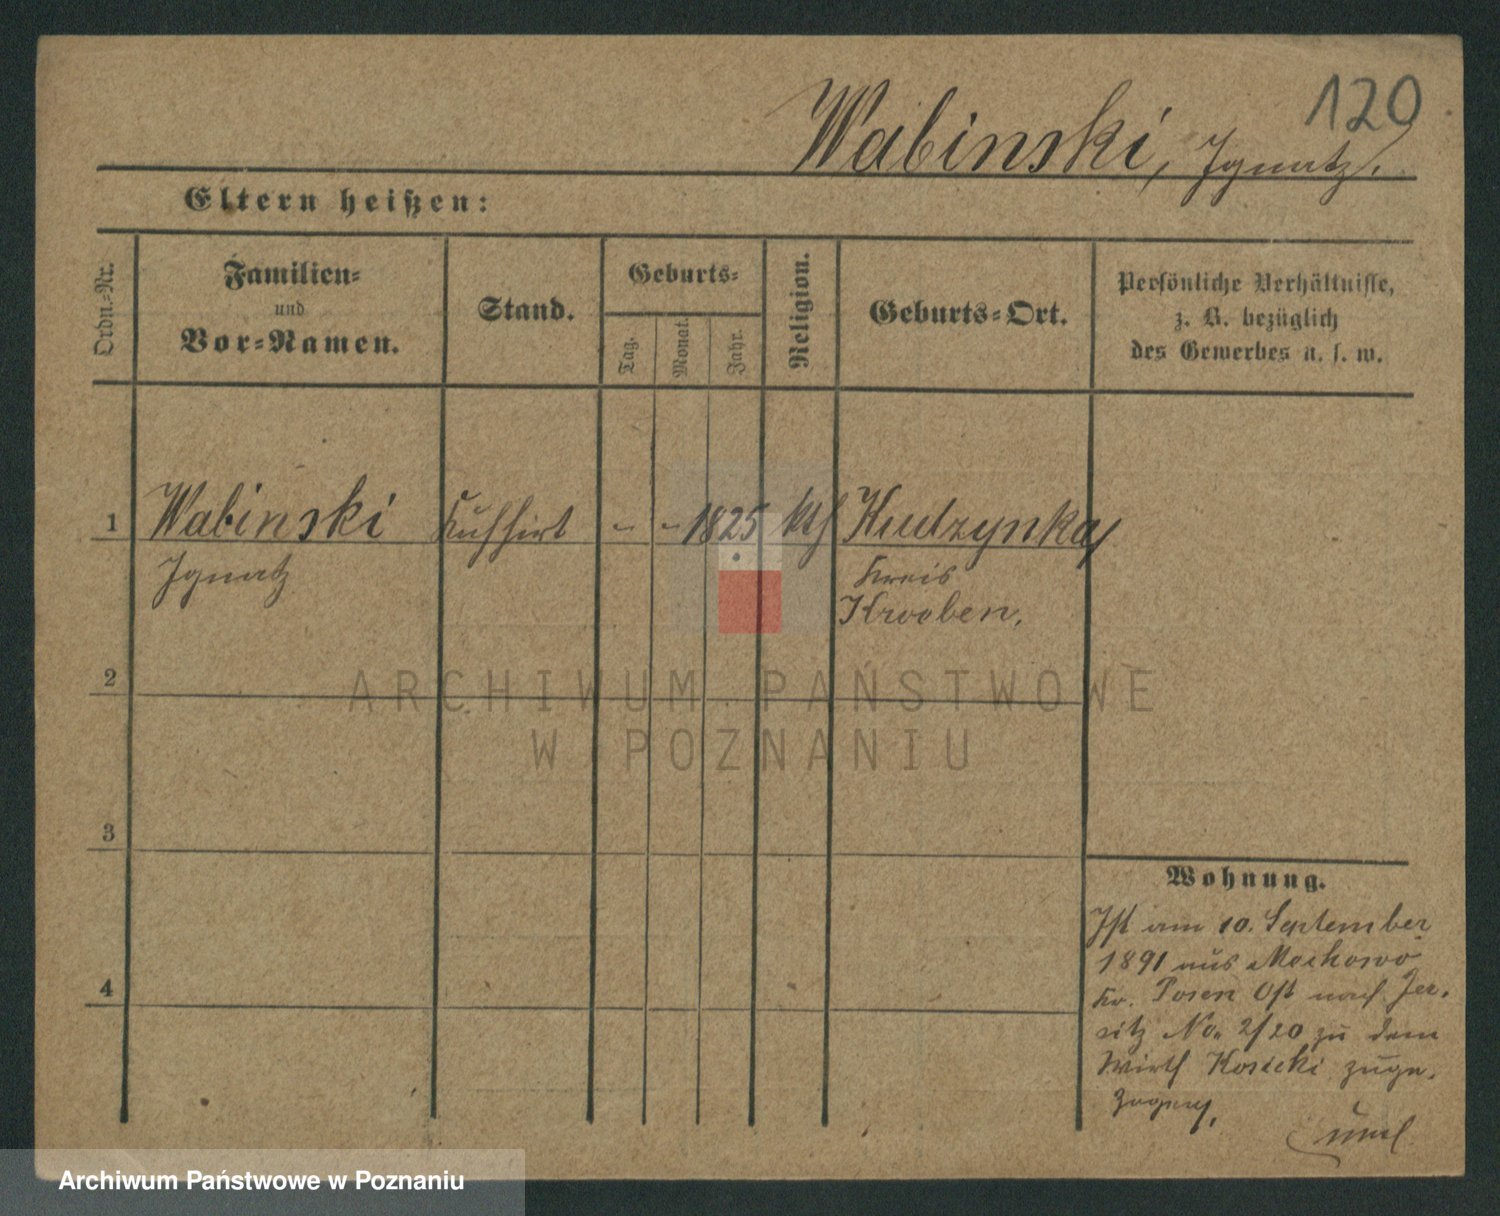 120
Wabinski, Ignatz.
Eltern heißen:
Ordn.-Nr.
Familien-
und
Vor-Namen.
Stand.
Geburts-
Tag.
Monat.
Jahr.
Religion.
Geburts-Ort.
Persönliche Verhältnisse,
z. B. bezüglich
des Gewerbes u. s. w.
1 Wabinski Kuhhirt - - 1825 kth
Ignatz
Kreis
Kroeben.
2
ARCHIWUM PAŃSTWOWE
W POZNANIU
3
4
Wohnung.
Ist am 10. September
1891 aus
Kr. Posen Ost nach Jer-
sitz No. 2/20 zu dem
Wirth Kosicki zuge-
zogen,
Archiwum Państwowe w Poznaniu